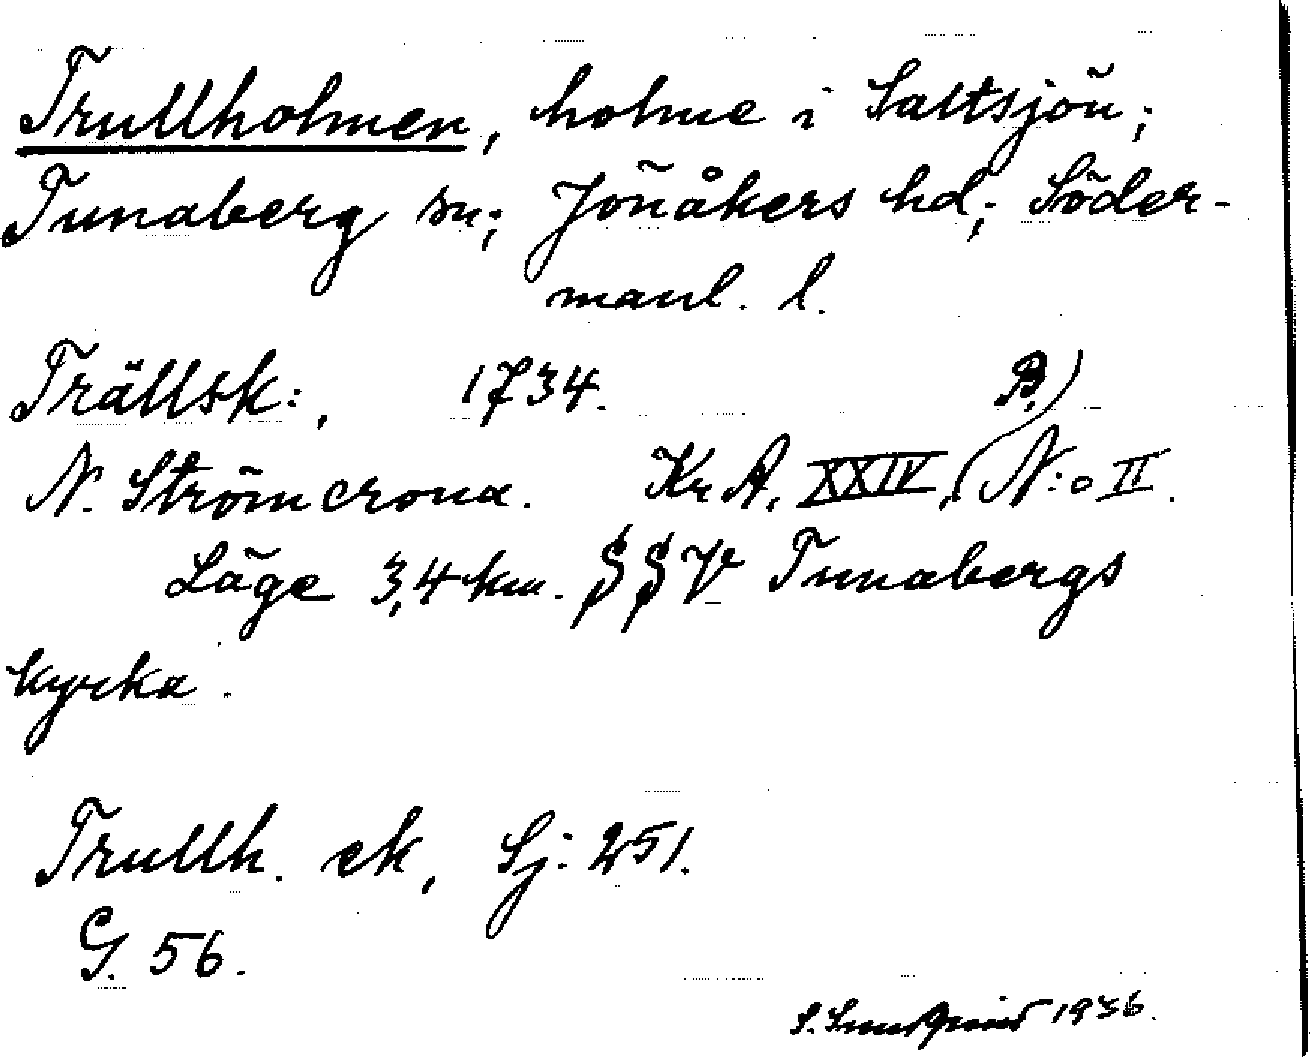 Trullholmen, holme i Saltsjön;
Tunaberg sn; Jönåkers hd; Söder-
manl. l.
Trällsk:, 1734. B.)
N. Strömcrona. Kr A, XXIV, N:o II.
Läge 3,4 km. S S V Tunabergs
kyrka.
Trullh. ek, Sj: 251.
G. 56.
S. Sundqvist 1936.